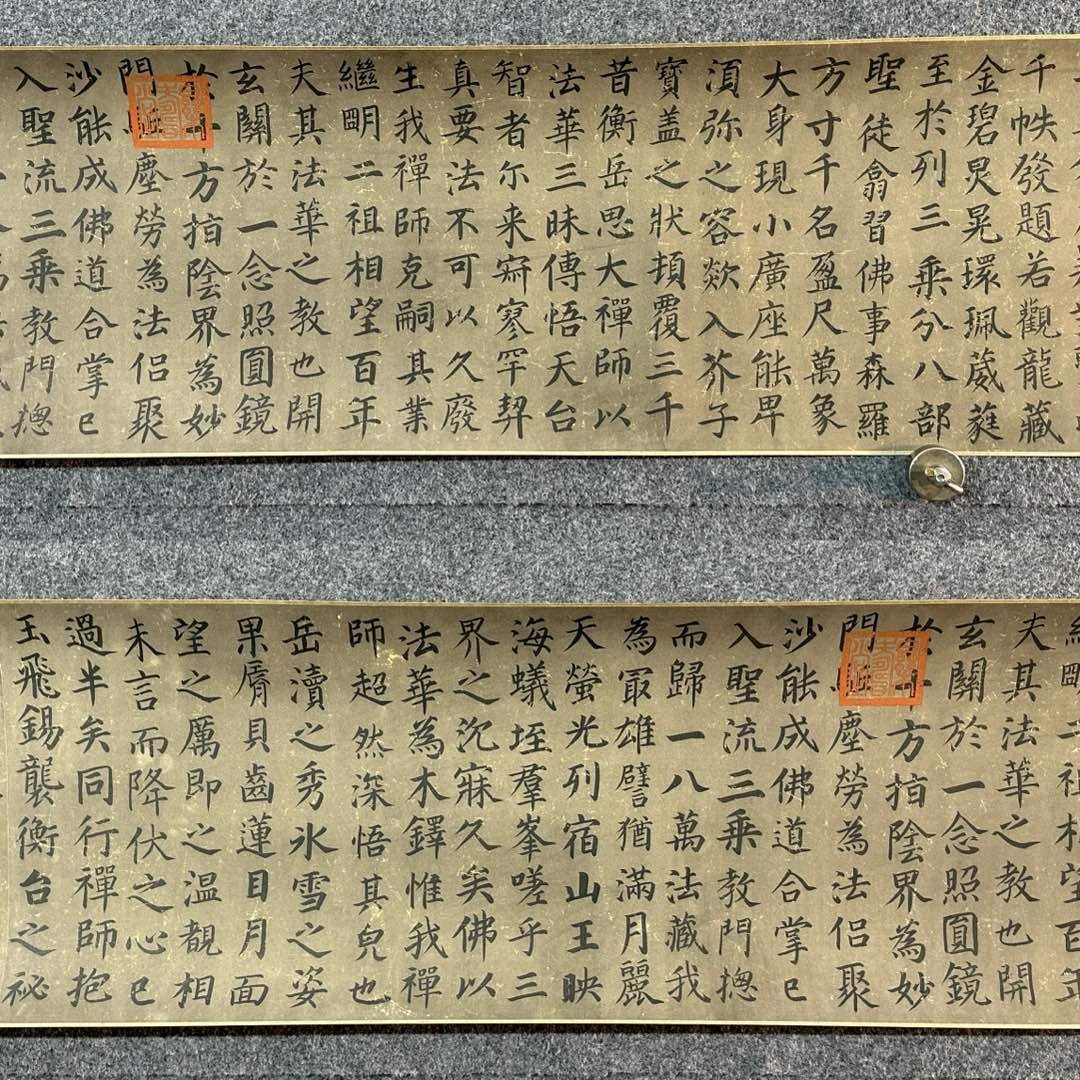 千帙發題若觀龍藏
金碧炅晃環珮葳蕤
至於列三乘分八部
聖徒翕習佛事森羅
方寸千名盈尺萬象
大身現小廣座能卑
湏弥之容欻入芥子
寶盖之狀頓覆三千
昔衡岳思大禪師以
法華三昧傳悟天台
智者尔来寂寥罕契
真要法不可以久廢
生我禪師克嗣其業
繼明二祖相望百年
夫其法華之教也開
玄關於一念照圓鏡
於十方指陰界為妙
門塵勞為法侣聚
沙能成佛道合掌已
入聖流三乘教門揔
繼明二祖相望百年
夫其法華之教也開
玄關於一念照圓鏡
於十方指陰界為妙
門塵勞為法侣聚
沙能成佛道合掌已
入聖流三乘教門揔
而歸一八萬法藏我
為冣雄譬猶滿月麗
天螢光列宿山王映
海蟻垤羣峯嗟乎三
界之沉寐久矣佛以
法華為木鐸惟我禪
師超然深悟其皃也
岳瀆之秀氷雪之姿
果脣貝齒蓮目月面
望之厲即之温覩相
未言而降伏之心已
過半矣同行禪師抱
玉飛錫襲衡台之祕